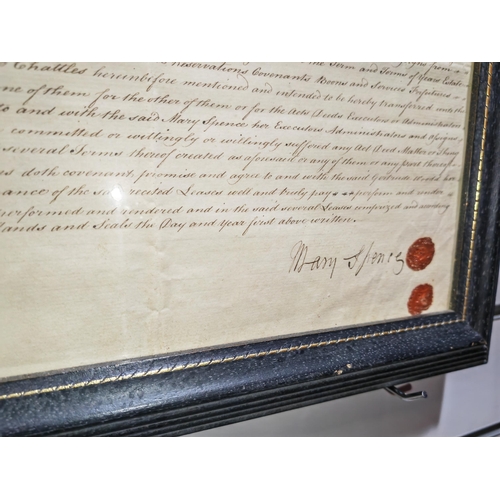 Reservations Covenants Boons and Services
Chattles hereinbefore mentioned and intended to be hereby transferred
one of them for the other of them or for the Acts Deeds Executors or Administrators
to and with the said Mary Spence her Executors Administrators and Assigns
committed or willingly or willingly suffered any Act Deed Matter or
several Terms thereof created as aforesaid or any of them or any part thereof
doth covenant promise and agree to and with the said
ance of the said recited Leases well and truly pay perform and
performed and rendered and in the said several Leases comprized and
Hands and Seals the Day and year first above written.
Mary Spence